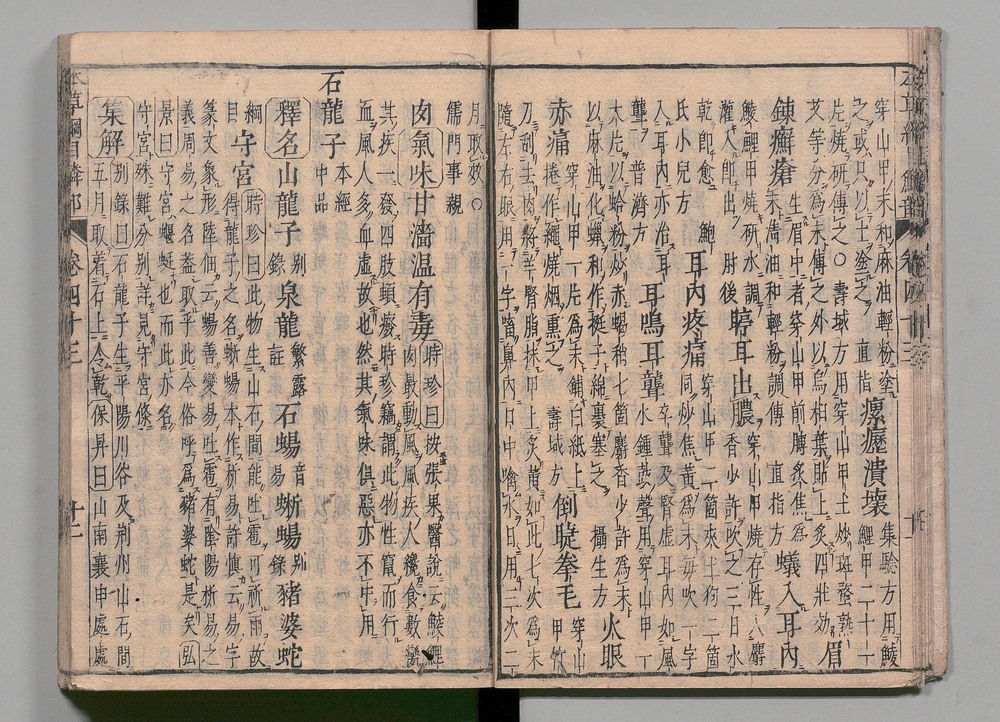 穿山甲末和麻油輕粉塗
之或只以土塗之 直指 瘰癧潰壞 集驗方用鯪
鯉甲二十一
片燒研傅之○壽域方用穿山甲土炒斑蝥熟
艾等分爲末傅之外以烏桕葉貼上灸四壯効 眉
錬癬瘡 生眉中者穿山甲前膊炙焦爲
末清油和輕粉調傅 直指方 蟻入耳內
鯪鯉甲燒研水調
灌入即出 肘後 聤耳出膿 穿山甲燒存性入麝
香少許吹之三日水
乾即愈 鮑
氏小兒方 耳內疼痛 穿山甲二箇夾土狗二箇
同炒焦黃爲末每吹一字
入耳內亦治耳
聾 普濟方 耳鳴耳聾 卒聾及腎虛耳內如風
水鍾鼓聲用穿山甲一
大片以蛤粉炒赤蝎梢七箇麝香少許爲末
以麻油化蠟和作挺子綿裹塞之 攝生方 火眼
赤痛 穿山甲一片爲末鋪白紙上
捲作繩燒烟熏之 壽域方 倒睫拳毛 穿山
甲竹
刀刮去肉將羊腎脂抹甲上炙黃如此七次爲末
隨左右眼用一字㗜鼻內口中噙水日用三次二
月取效○
儒門事親
肉氣味甘濇温有毒 時珍曰按張杲醫說云鯪鯉
肉最動風風疾人纔食數臠
其疾一發四肢頓癈時珍竊謂此物性竄而行
血風人多血虛故也然其氣味俱惡亦不中用
石龍子 本經
中品
釋名山龍子 别
錄 泉龍 繁露
註 石蜴 音
易 蜥蜴 别
錄 豬婆蛇
綱
目 守宮 時珍曰此物生山石間能吐雹可祈雨故
得龍子之名蜥蜴本作析易許慎云易字
篆文象形陸佃云蜴善變易吐雹有陰陽析易之
義周易之名葢取乎此今俗呼爲豬婆蛇是矣弘
景曰守宮蝘蜓也而此亦名
守宮殊難分别詳見守宮條
集解 别錄曰石龍子生平陽川谷及荆州山石間
五月取着石上令乾保昇曰山南襄申處處
卷四十三
卷四十三
十二